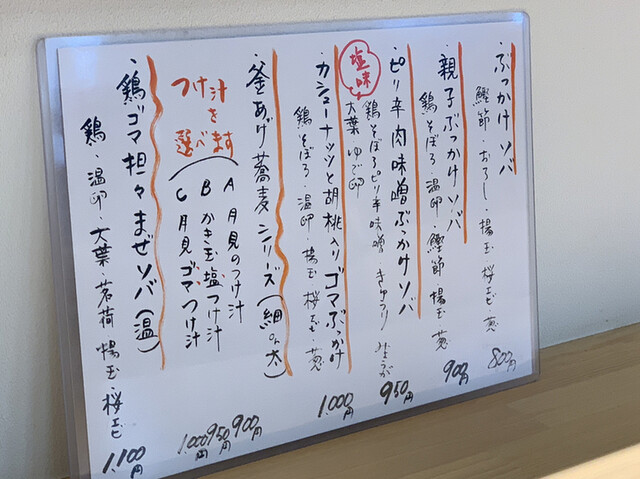 ・ぶっかけソバ
鰹節・おろし・揚玉 桜エビ 葱
800円
・親子ぶっかけソバ
鶏そぼろ・温卵・鰹節 揚玉 葱
900円
・ピリ辛肉味噌ぶっかけソバ
鶏そぼろピリ辛味噌 きゅうり
大葉 ゆで卵
950円
塩味
・カシューナッツと胡桃入りゴマぶっかけ
鶏そぼろ・温卵・揚玉 桜エビ・葱
1,000円
・釜あげ蕎麦シリーズ(細or太)
つけ汁を選べます
A 月見のつけ汁
900円
B かき玉塩つけ汁
950円
C 月見ゴマつけ汁
1,000円
・鶏ゴマ担々まぜソバ(温)
鶏・温卵・大葉・茗荷 揚玉・桜エビ
1,100円